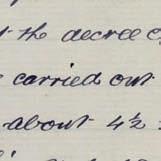 the decree
carried out
about 4½